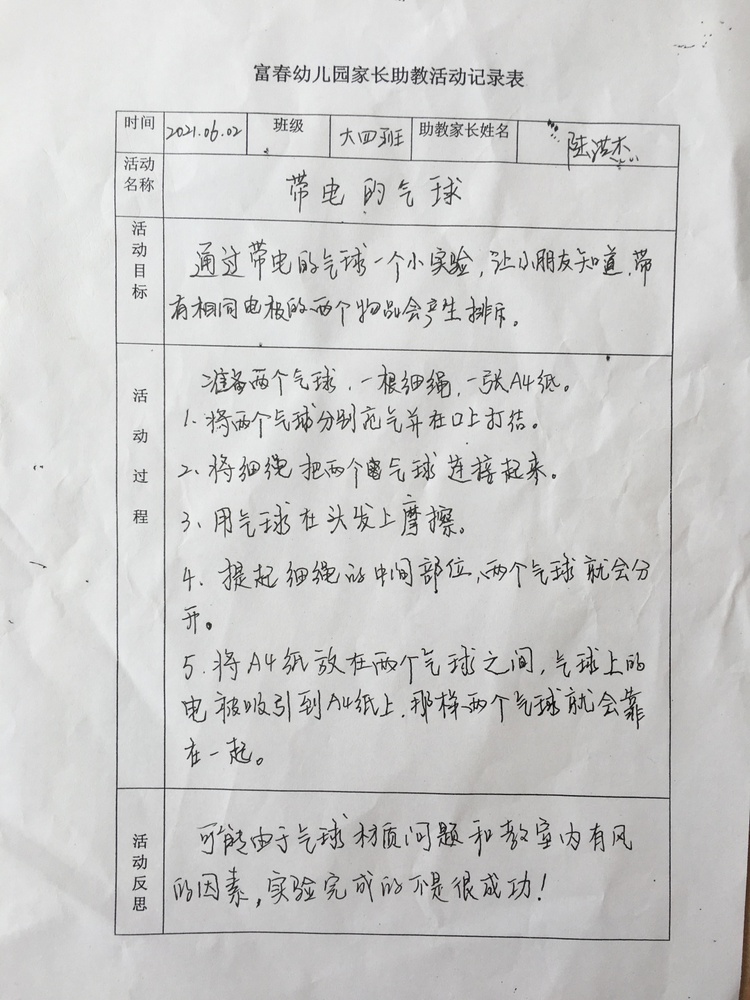 富春幼儿园家长助教活动记录表
时间 2021.06.02 班级 大四班 助教家长姓名 陆洪杰
活动名称 带电的气球
活动目标
通过带电的气球一个小实验，让小朋友知道，带
有相同电极的两个物品会产生排斥。
活动过程
准备两个气球，一根细绳，一张A4纸。
1、将两个气球分别充气并在口上打结。
2、将细绳把两个气球连接起来。
3、用气球在头发上摩擦。
4、提起细绳的中间部位，两个气球就会分
开。
5、将A4纸放在两个气球之间，气球上的
电被吸引到A4纸上，那样两个气球就会靠
在一起。
活动反思
可能由于气球材质问题和教室内有风
的因素，实验完成的不是很成功！